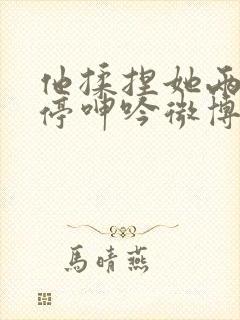 他揉捏她两
停呻吟微博
馬晴燕